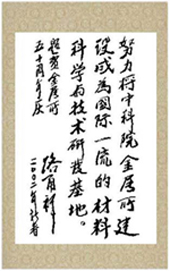 努力将中科院金属所建
设成为国际一流的材料
科学与技术研发基地。
恭贺金属所
五十周年庆
路甬祥
二〇〇二年新春